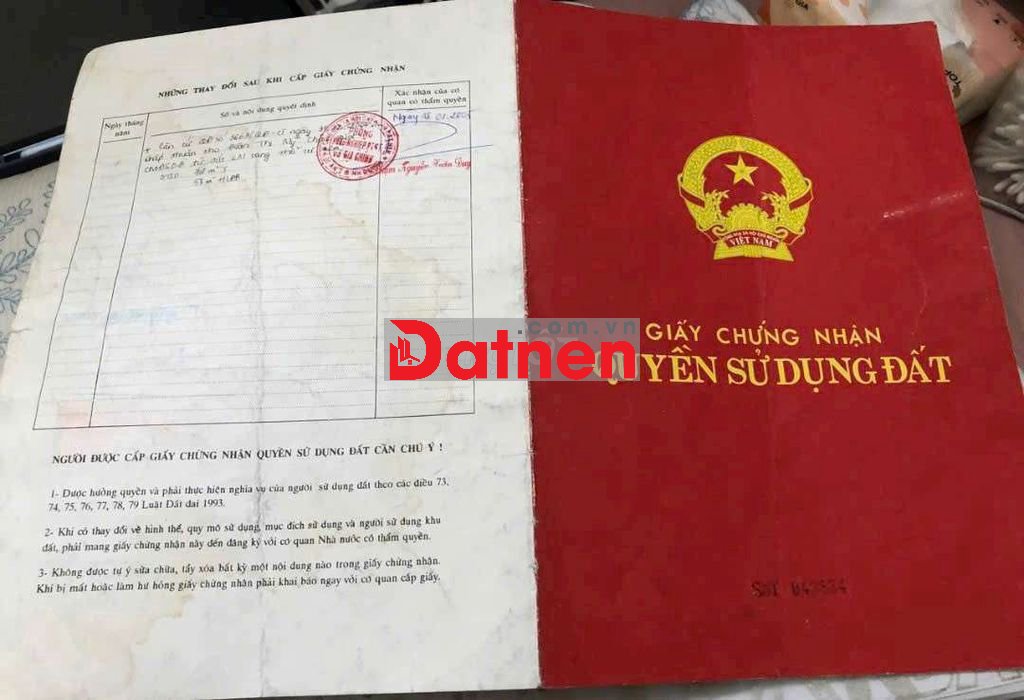 NHỮNG THAY ĐỔI SAU KHI CẤP GIẤY CHỨNG NHẬN
Ngày tháng năm
Số và nội dung quyết định
Xác nhận của cơ
quan có thẩm quyền
Căn cứ
ngày
chấp thuận cho Thị
sang thổ cư
Ngày 01.2003
PHÒNG
Nguyễn Xuân Duy
NGƯỜI ĐƯỢC CẤP GIẤY CHỨNG NHẬN QUYỀN SỬ DỤNG ĐẤT CẦN CHÚ Ý !
1- Được hưởng quyền và phải thực hiện nghĩa vụ của người sử dụng đất theo các điều 73,
74, 75, 76, 77, 78, 79 Luật Đất đai 1993.
2- Khi có thay đổi về hình thể, quy mô sử dụng, mục đích sử dụng và người sử dụng khu
đất, phải mang giấy chứng nhận này đến đăng ký với cơ quan Nhà nước có thẩm quyền.
3- Không được tự ý sửa chữa, tẩy xóa bất kỳ một nội dung nào trong giấy chứng nhận.
Khi bị mất hoặc làm hư hỏng giấy chứng nhận phải khai báo ngay với cơ quan cấp giấy.
.com.vn
Datnen
VIỆT NAM
GIẤY CHỨNG NHẬN
QUYỀN SỬ DỤNG ĐẤT